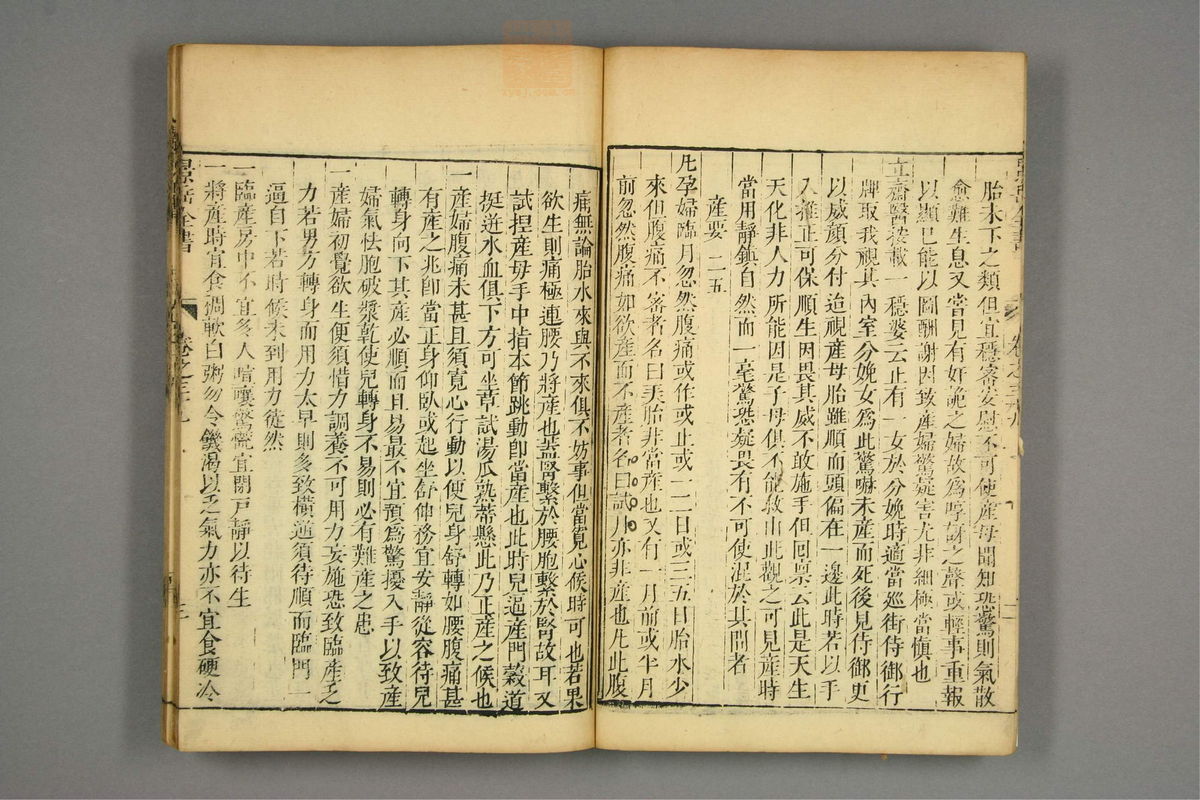 胎未下之類但宜穩密安慰不可使産母聞知恐驚則氣散
愈難生息又嘗見有奸詭之婦故爲哼訝之聲或輕事重報
以顯已能以圖酬謝因致産婦驚疑害尤非細極當愼也
立齋醫按載一穩婆云止有一女於分娩時適當巡街侍御行
牌取我視其內室分娩女爲此驚嚇未産而死後見侍御更
以威顏分付迨視産母胎雖順而頭偏在一邊此時若以手
入推正可保順生因畏其威不敢施手但回禀云此是天生
天化非人力所能因是子母俱不能救由此觀之可見産時
當用靜鎮自然而一毫驚恐疑畏有不可使混於其間者
産要 二五
凡孕婦臨月忽然腹痛或作或止或一二日或三五日胎水少
來但腹痛不密者名曰弄胎非當産也又有一月前或半月
前忽然腹痛如欲産而不産者名曰試月亦非産也凡此腹
痛無論胎水來與不來俱不妨事但當寬心候時可也若果
欲生則痛極連腰乃將産也蓋腎繫於腰胞繫於腎故耳又
試捏産母手中指本節跳動卽當産也此時兒逼産門穀道
挺迸水血俱下方可坐草試湯瓜熟蒂懸此乃正産之候也
一産婦腹痛未甚且須寬心行動以便兒身舒轉如腰腹痛甚
有産之兆卽當正身仰臥或起坐舒伸務宜安靜從容待兒
轉身向下其産必順而且易最不宜預爲驚擾入手以致産
婦氣怯胞破漿乾使兒轉身不易則必有難産之患
一産婦初覺欲生便須惜力調養不可用力妄施恐致臨産乏
力若男方轉身而用力太早則多致橫逆須待順而臨門一
逼自下若時候未到用力徒然
一臨産房中不宜多人喧嚷驚慌宜閉戸靜以待生
一將産時宜食稠軟白粥勿令饑渴以乏氣力亦不宜食硬冷
景岳全書
卷之三九
三